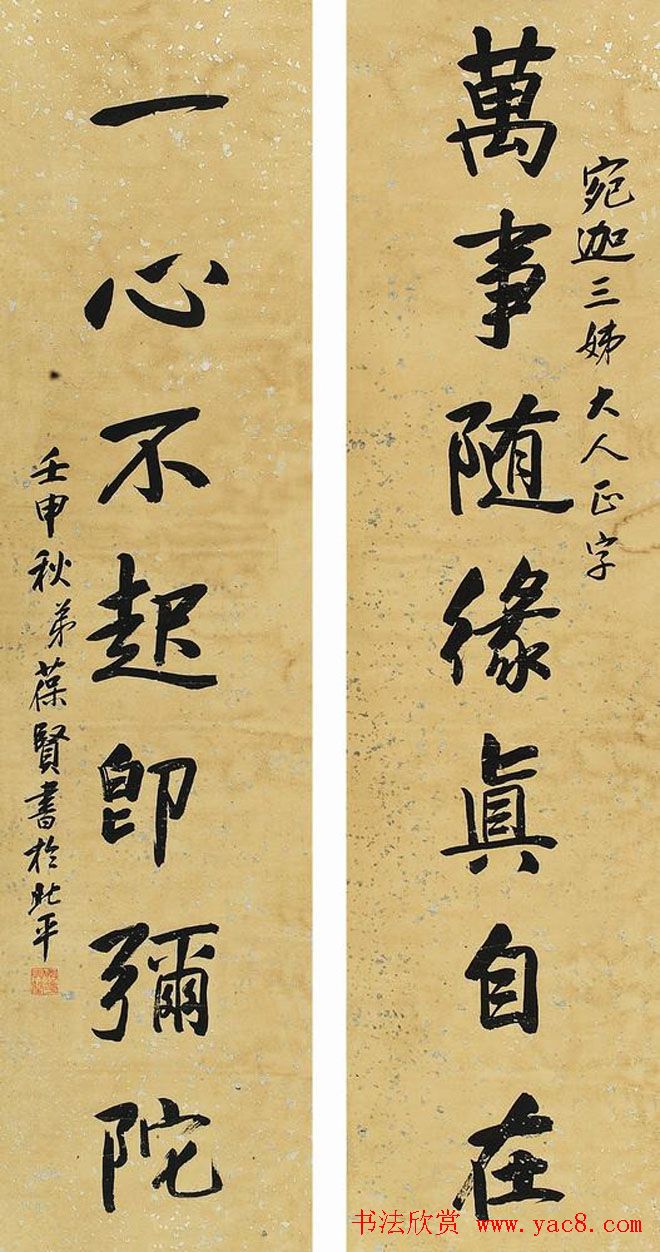 宛迦三姊大人正字
萬事随緣真自在
一心不起即彌陀
壬申秋弟葆賢書於北平
书法欣赏 www.yac8.com